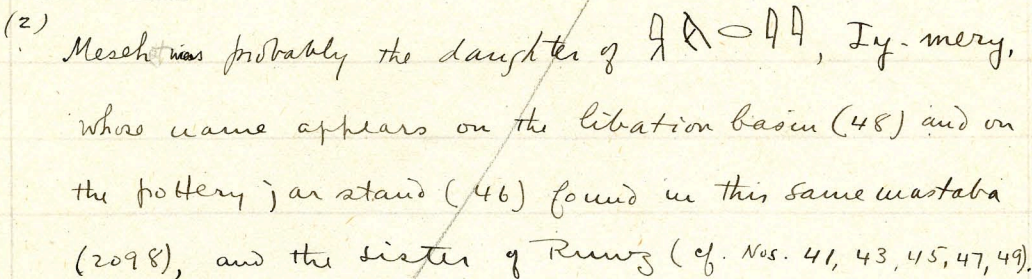 (2) Meseh was probably the daughter of 𓇋𓌸𓂋𓇋𓇋, Iy-mery,
whose name appears on the libation basin (48) and on
the pottery jar stand (46) found in this same mastaba
(2098), and the sister of Ruwz (cf. Nos. 41, 43, 45, 47, 49)